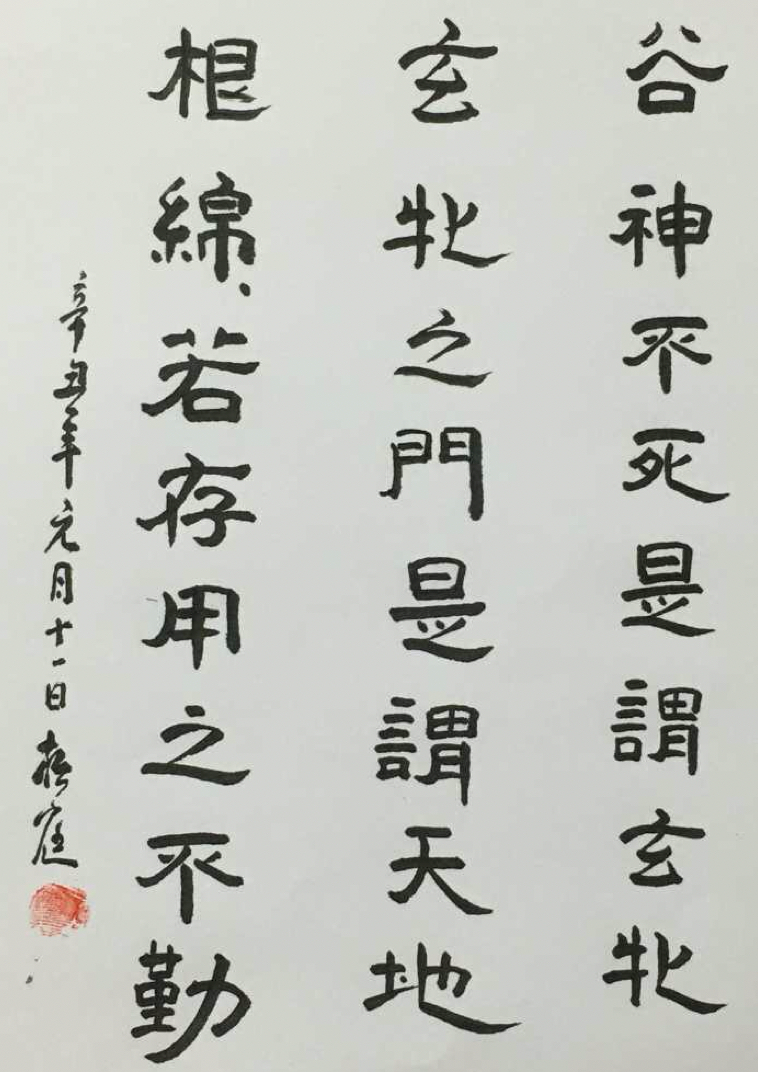 谷神不死是謂玄牝
玄牝之門是謂天地
根綿、若存用之不勤
辛丑年元月十一日